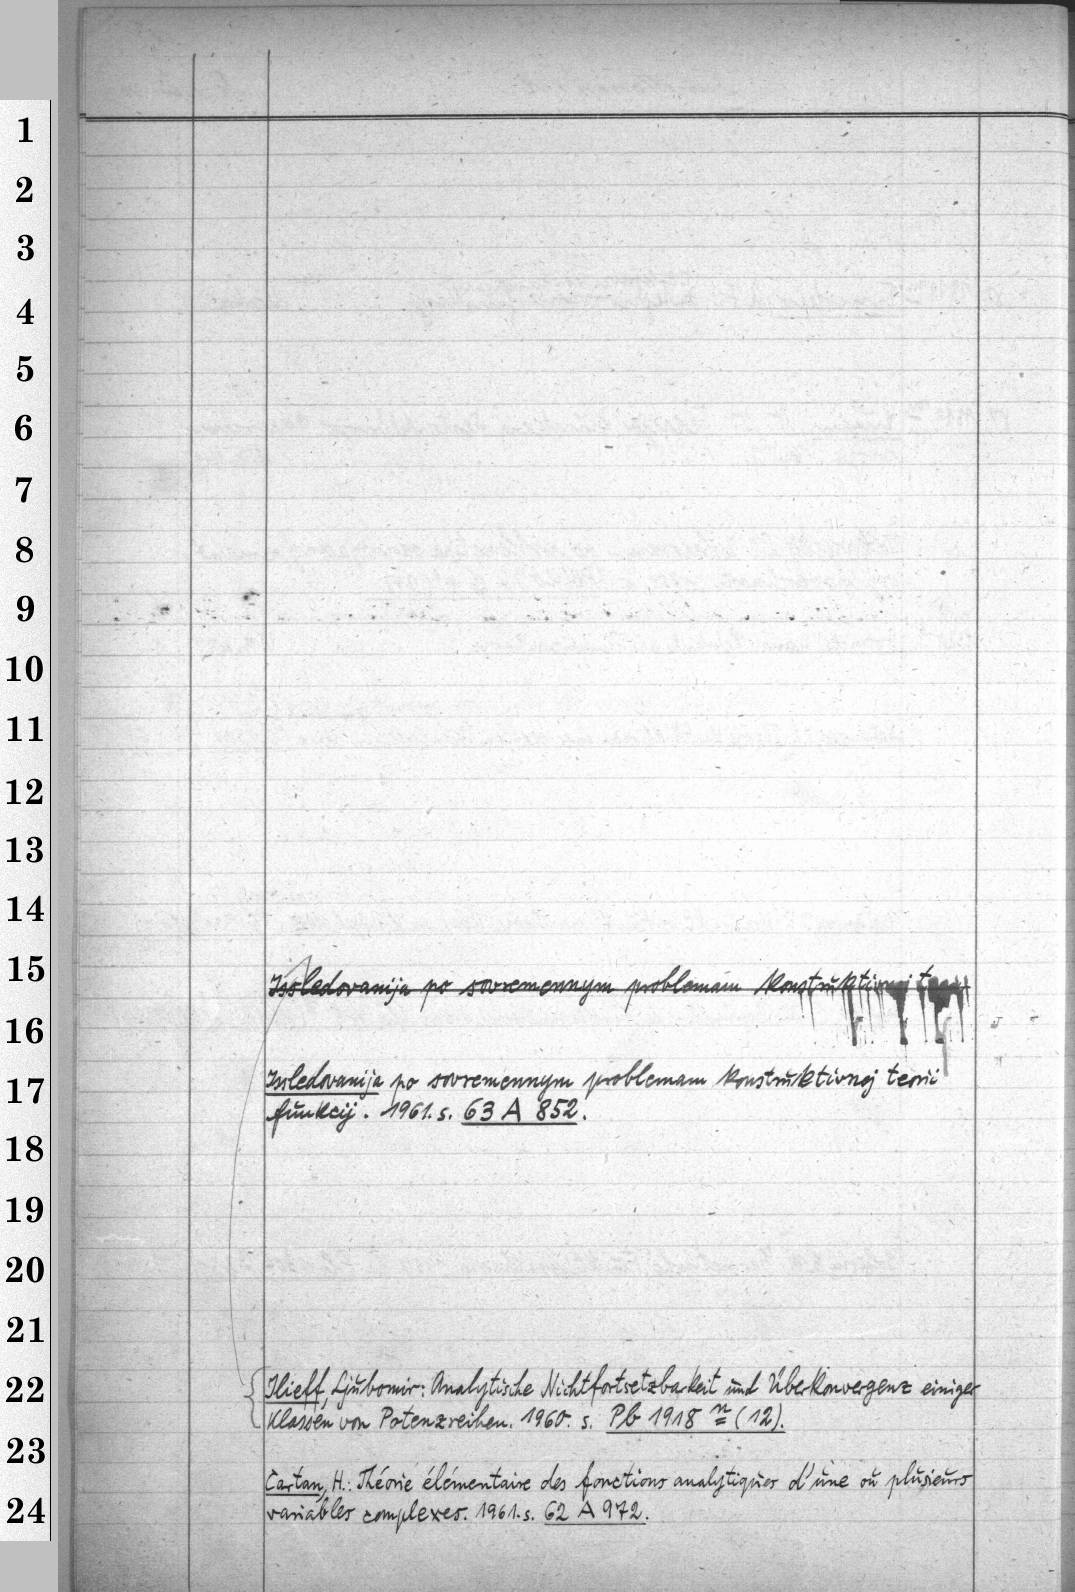 1
2
3
4
5
6
7
8
9
10
11
12
13
14
15
Issledovanija po sovremennym problemam konstruktivnoj
16
17
Issledovanija po sovremennym problemam konstruktivnoj teorii
funkcij. 1961. s. 63 A 852.
18
19
20
21
22
Ilieff, Ljubomir: Analytische Nichtfortsetzbarkeit und Überkonvergenz einiger
Klassen von Potenzreihen. 1960. s. Pb 1918 n (12).
23
Cartan, H.: Théorie élémentaire des fonctions analytiques d'une où plusieurs
24
variables complexes. 1961. s. 62 A 972.